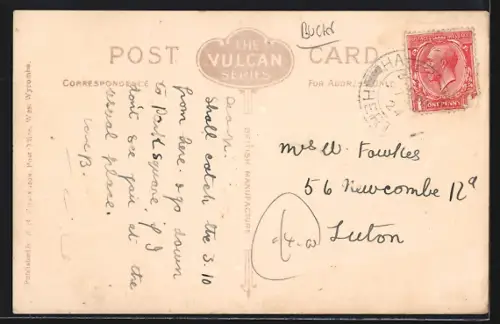 Bucks
POST CARD
THE
VULCAN
SERIES
CORRESPONDENCE
FOR ADDRESS
BRITISH MANUFACTURE
Shall catch the 3.10
from here & go down
to Park Square, if I
don't see you at the
usual place.
Love B.
ONE PENNY
Mrs W. Fowkes
56 Newcombe Rd
Luton
Post Office, West Wycombe.